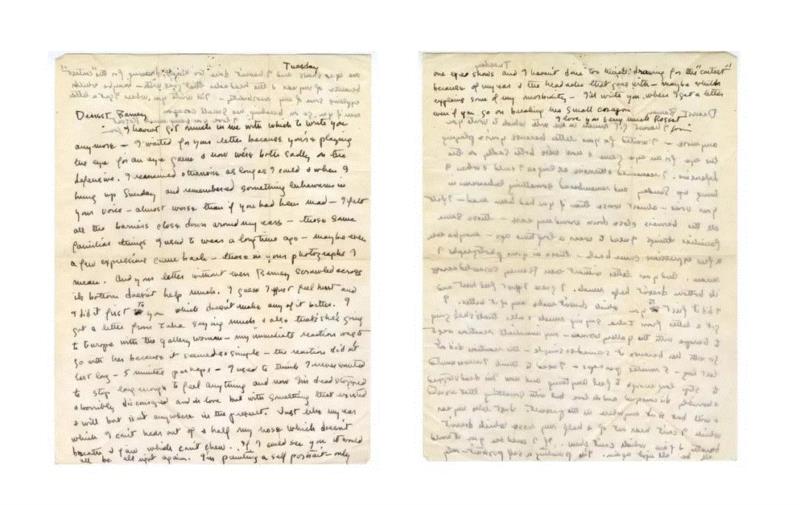 Tuesday
Dearest Barney,
I haven't got much in me with which to write you
anymore - I waited for your letter because you're playing
the eye for an eye game & now were both sadly on the
defensive. I remained otherwise as long as I could & when I
hung up Sunday and remembered something in
your voice - almost worse than if you had been mad - I felt
all the barriers close down around my ears - those same
familiar things I used to wear a long time ago - maybe even
a few expressions came back - those in your photographs I
mean. And your letter without even Barney scrawled across
its bottom doesn't help much. I guess I just feel hurt and
I did it first to you which doesn't make any of it better. I
got a letter from saying much & also that she's going
to Europe with the gallery woman - my immediate reaction was to
go with her because it seemed so simple - the reaction did not
last long - 5 minutes perhaps - I used to think I never wanted
to stop long enough to feel anything and now I'm dead stopped
& horribly discouraged and in love but with something that existed
& will but isn't anywhere in the present. Just like my ear
which I can't hear out of & half my nose which doesn't
breathe & jaw which can't chew. If I could see you it would
all be all right again. I'm painting a self portrait - only
one eye shows and I haven't done too much drawing for the "contest"
because of my ear & the headaches that goes with - maybe which
explains some of my morbidity - I'd write you when I get a letter
even if you go on breaking me small
I love you very much Rosset
Joan